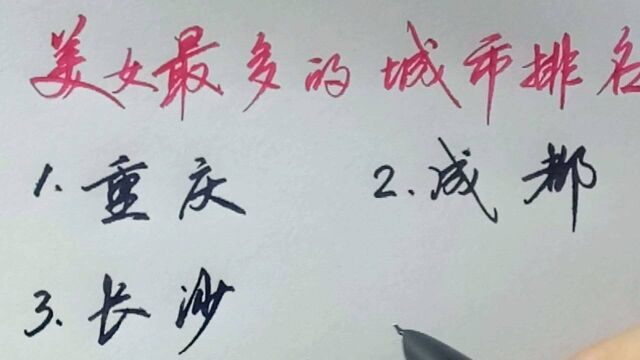 美女最多的城市排名
1.重庆 2.成都
3.长沙